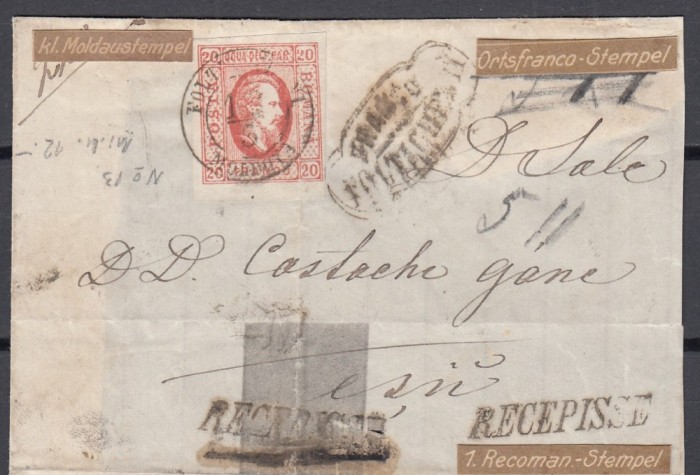 kl. Moldaustempel
Ortsfranco-Stempel
20 20
20 20
FRANCO
FOLTICHENII
D Sale
No 13
Mi. Nr. 12.-
5 11
D D. Costache Gane
esü
RECEPISSE RECEPISSE
1. Recoman-Stempel